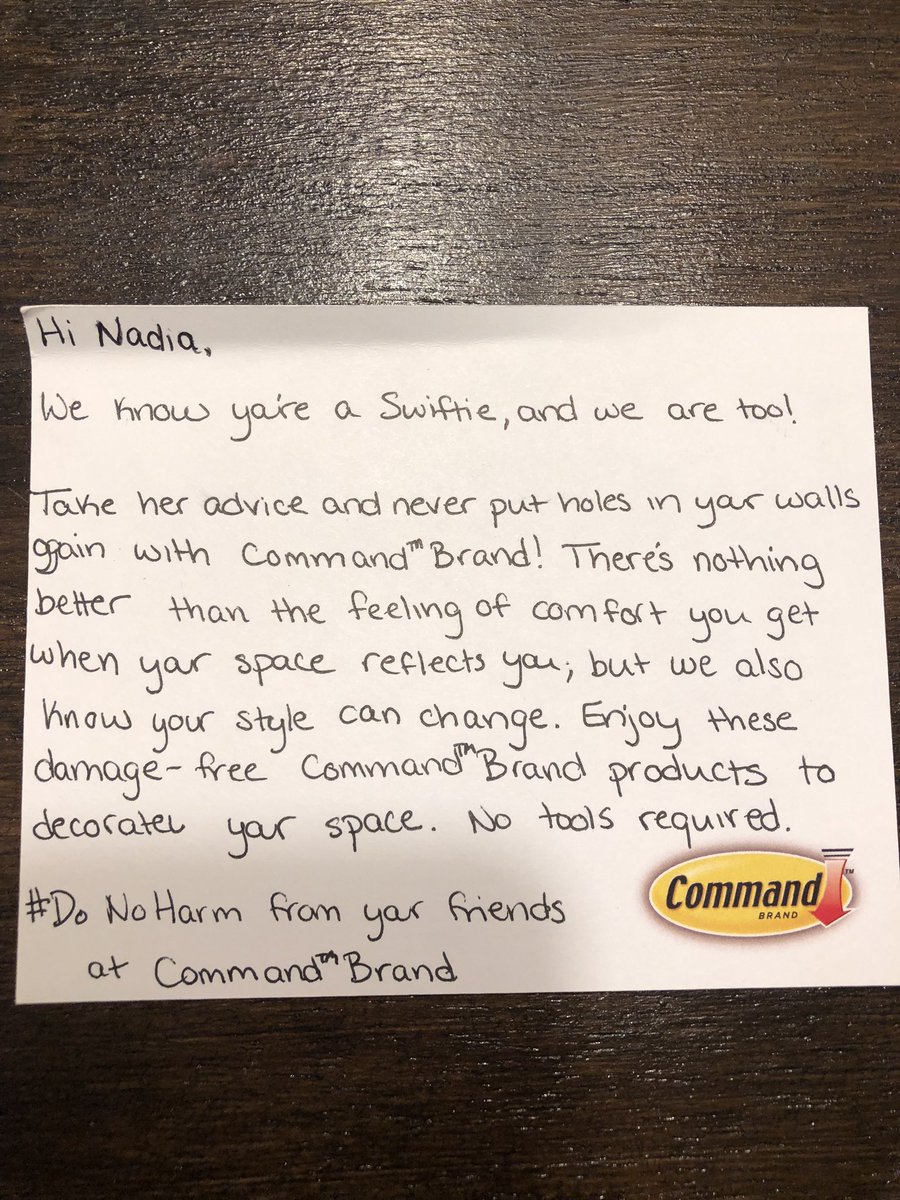 Hi Nadia,
We know you're a Swiftie, and we are too!
Take her advice and never put holes in your walls
again with Command™ Brand! There's nothing
better than the feeling of comfort you get
when your space reflects you; but we also
know your style can change. Enjoy these
damage-free Command™ Brand products to
decorate your space. No tools required.
#Do No Harm from your friends
at Command™ Brand
Command™
BRAND